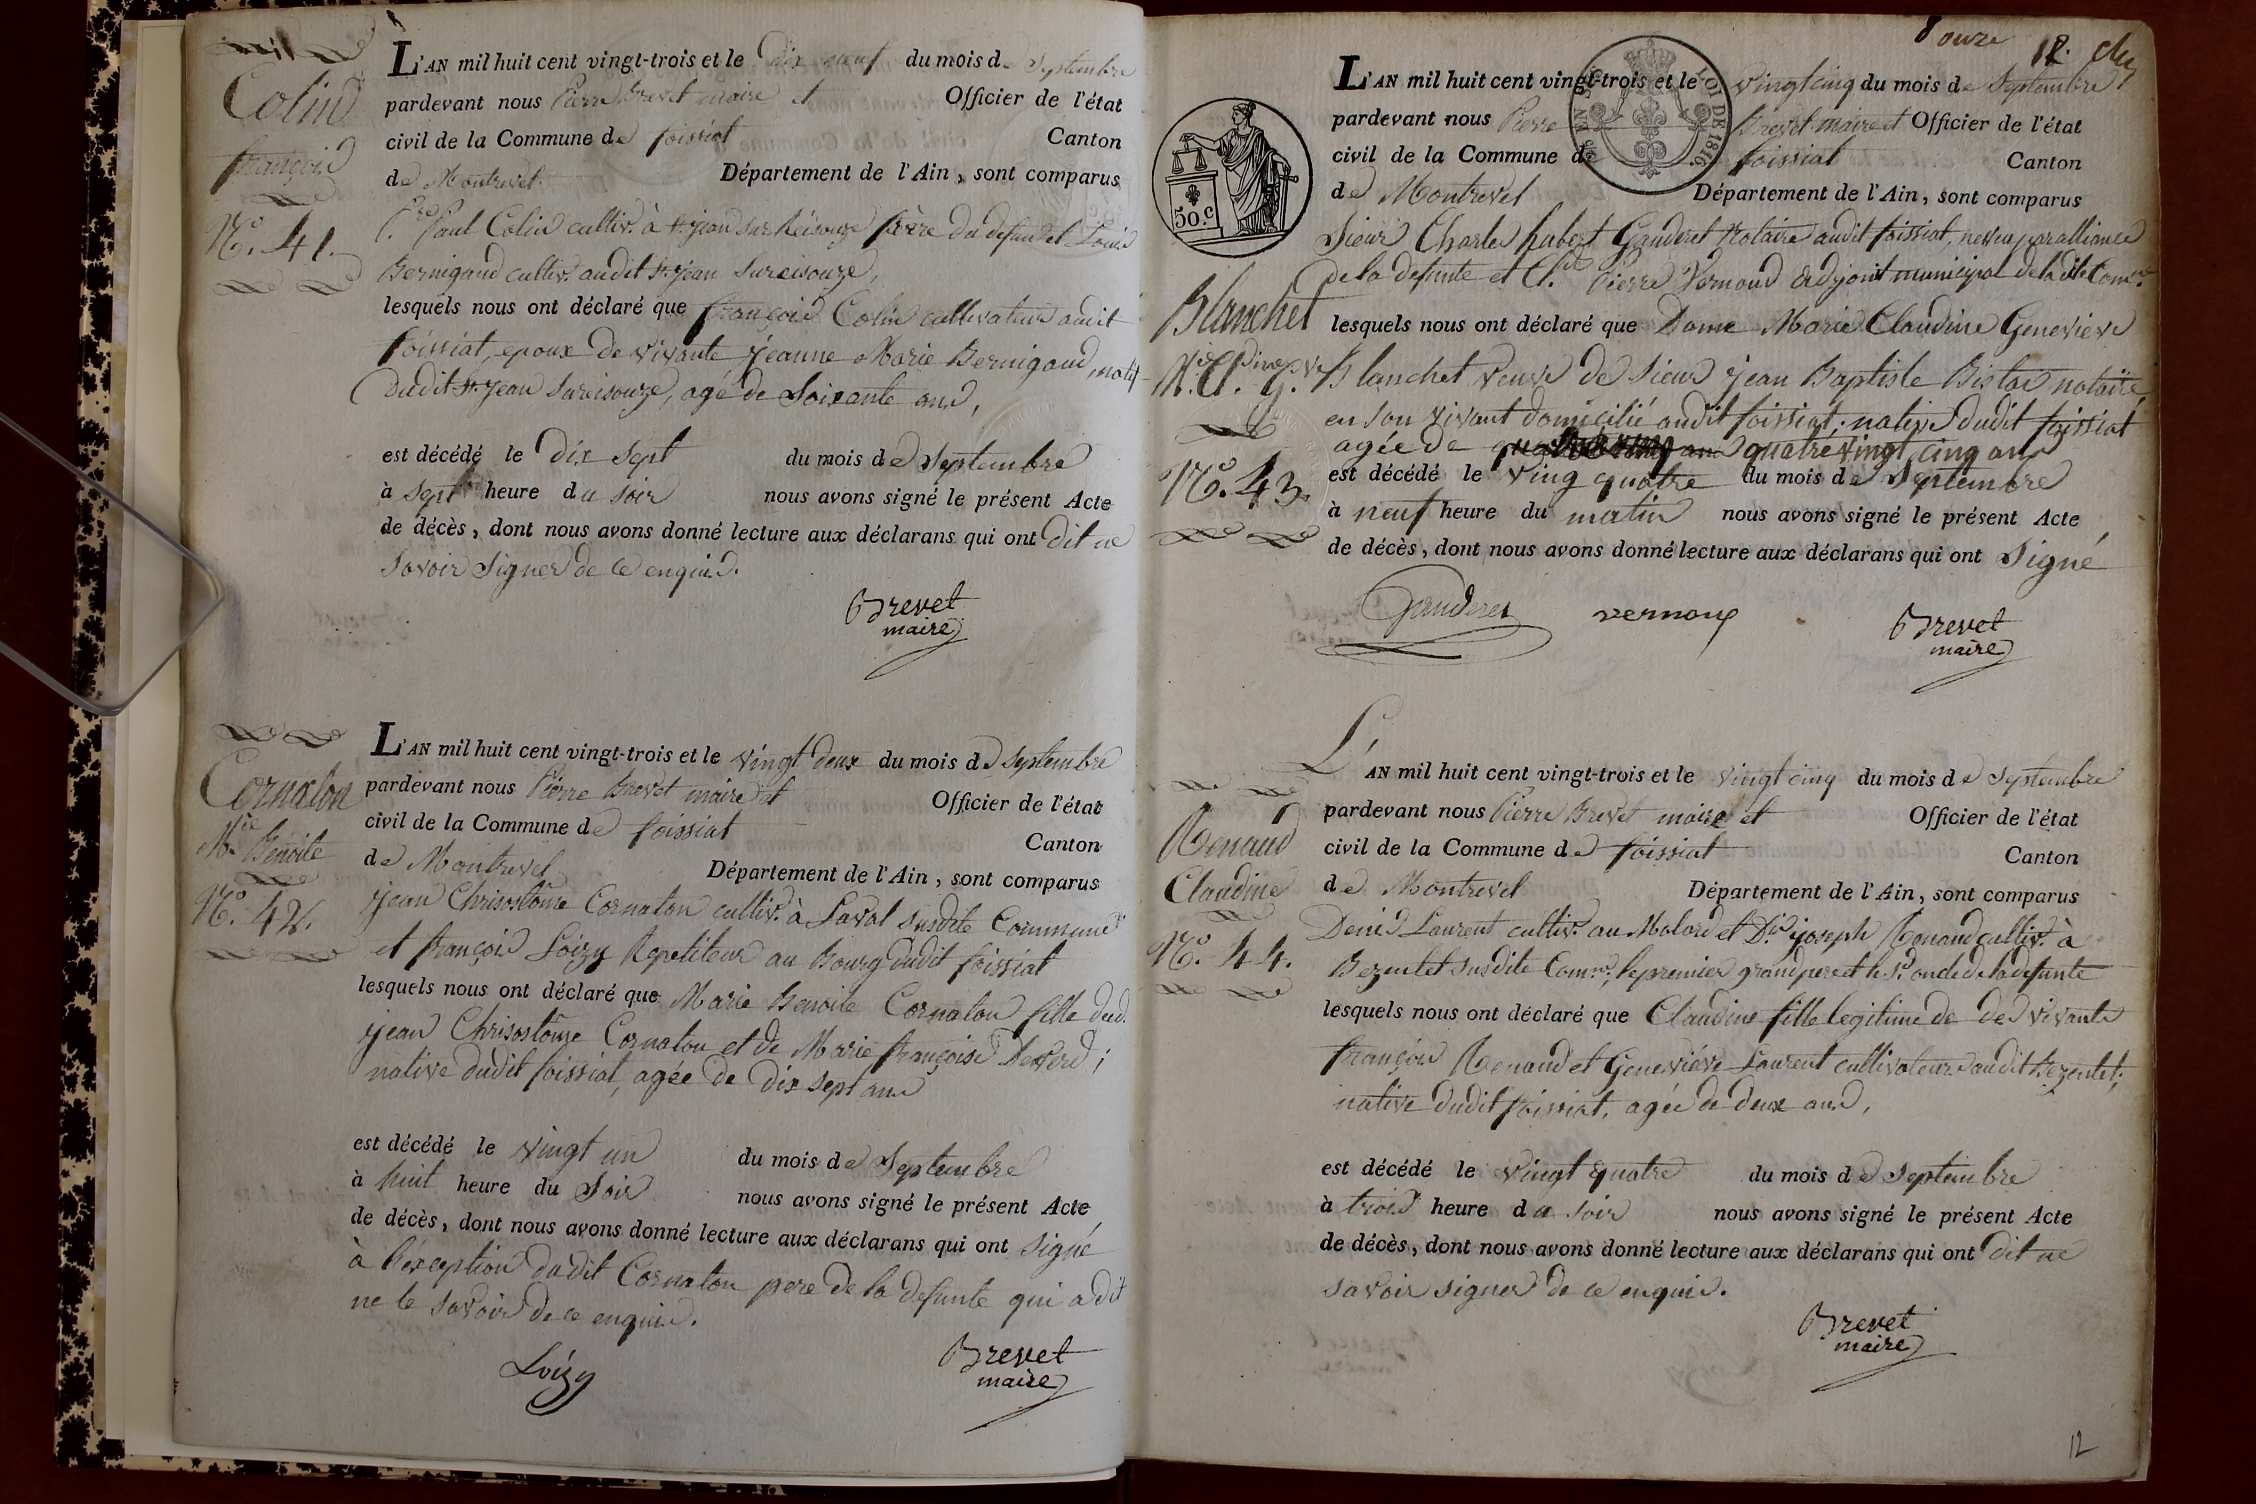 Colin
françois
N.° 41.
L'AN mil huit cent vingt-trois et le Dix neuf du mois de Septembre
pardevant nous Pierre Brevet maire et Officier de l'état
civil de la Commune de foissiat Canton
de Montrevel Département de l'Ain, sont comparus
Paul Colin cultiv.r à St. jean sur Reisouze frère du defunt et Louis
Bernigaud cultiv.r audit St. jean Sureisouze,
lesquels nous ont déclaré que françois Colin cultivateur audit
foissiat, epoux de vivante jeanne Marie Bernigaud, natif
Dudit St. jean Sureisouze, agé de Soixante ans,
est décédé le Dix sept du mois de Septembre
à Sept heure du Soir nous avons signé le présent Acte
de décès, dont nous avons donné lecture aux déclarans qui ont dit ne
Savoir Signer de ce enquis.
Brevet
maire
Cornaton
M.ie Benoite
N.° 42.
L'AN mil huit cent vingt-trois et le vingt deux du mois de Septembre
pardevant nous Pierre Brevet maire et Officier de l'état
civil de la Commune de foissiat Canton
de Montrevel Département de l'Ain, sont comparus
jean Chrisostôme Cornaton cultiv.r à Laval susdite Commune
et françois Loizy Repetiteur au Bourg dudit foissiat
lesquels nous ont déclaré que Marie Benoite Cornaton fille dud.
jean Chrisostôme Cornaton et de Marie françoise
native dudit foissiat, agée de Dix sept ans
est décédé le vingt un du mois de Septembre
à huit heure du Soir nous avons signé le présent Acte
de décès, dont nous avons donné lecture aux déclarans qui ont signé
à l'exception dudit Cornaton pere de la defunte qui a dit
ne le savoir de ce enquis.
Loizy
Brevet
maire
onze
12.
50.c
LOI DE 1816.
Blanchet
M.ie C.dine G.ve
N.° 43.
L'AN mil huit cent vingt-trois et le vingt cinq du mois de Septembre
pardevant nous Pierre Brevet maire et Officier de l'état
civil de la Commune de foissiat Canton
de Montrevel Département de l'Ain, sont comparus
Sieur Charles hubert Ganderet Notaire audit foissiat, neveu par alliance
de la defunte et Pierre Vernoux adjoint municipal de ladite Com.ne
lesquels nous ont déclaré que Dame Marie Claudine Genevieve
Blanchet Veuve de Sieur jean Baptiste Bistac notaire
en son vivant domicilié audit foissiat, native dudit foissiat
agée de quatrevingt cinq ans
est décédé le ving quatre du mois de Septembre
à neuf heure du matin nous avons signé le présent Acte
de décès, dont nous avons donné lecture aux déclarans qui ont Signé
Ganderet
vernoux
Brevet
maire
Renaud
Claudine
N.° 44.
L'AN mil huit cent vingt-trois et le vingt cinq du mois de Septembre
pardevant nous Pierre Brevet maire et Officier de l'état
civil de la Commune de foissiat Canton
de Montrevel Département de l'Ain, sont comparus
Denis Laurent cultiv.r au Molard et joseph Renaud cultiv.r à
Bezentet susdite Comm.e, le premier grand pere et le S.d oncle de la defunte
lesquels nous ont déclaré que Claudine fille legitime de de vivants
françois Renaud et Geneviéve Laurent cultivateurs audit Bezentet;
native dudit foissiat, agée de deux ans,
est décédé le vingt quatre du mois de Septembre
à trois heure du soir nous avons signé le présent Acte
de décès, dont nous avons donné lecture aux déclarans qui ont dit ne
savoir signer de ce enquis.
Brevet
maire
12